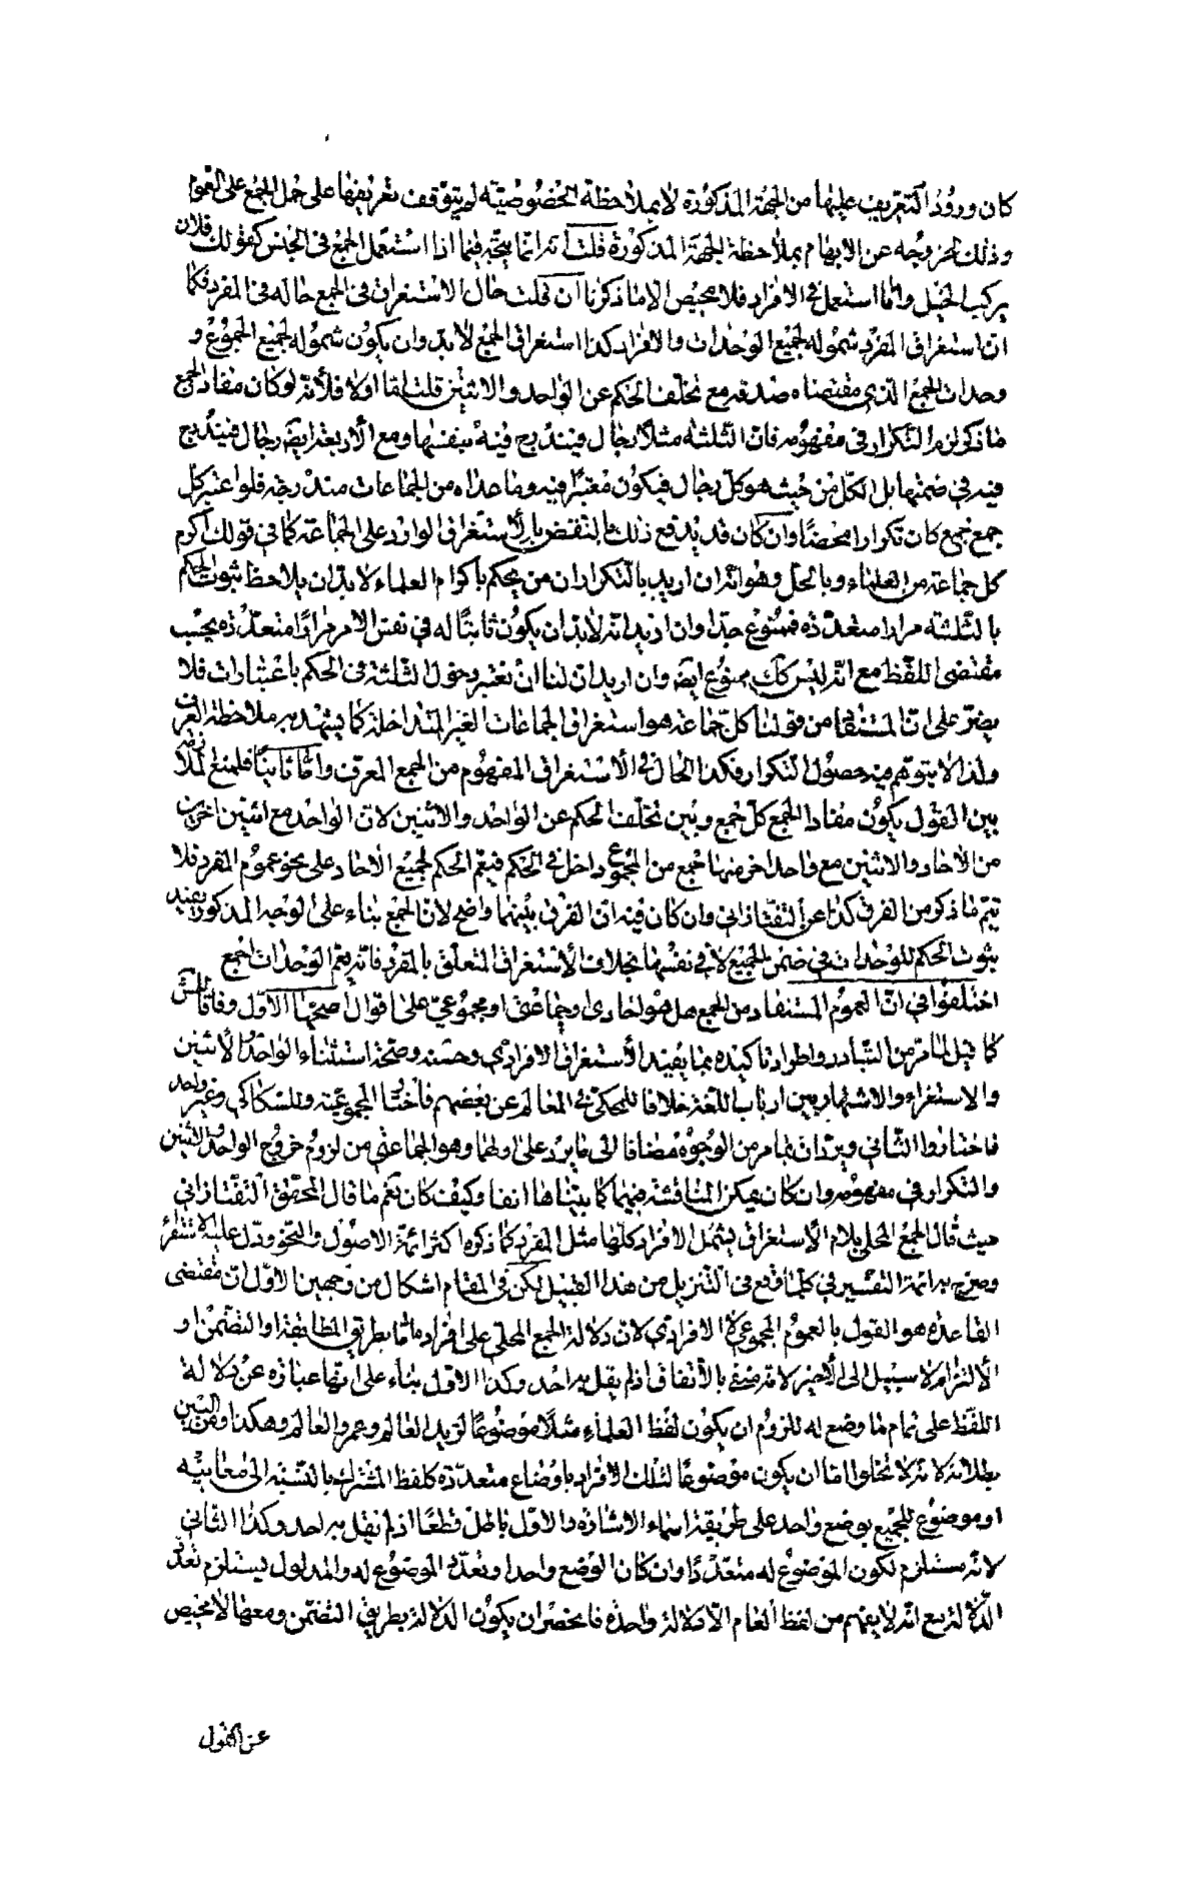 كان ورود التعريف عليها من الجهة المذكورة لا بملاحظة الخصوصية لم يتوقف تعريفها على حمل الجمع على العموم
وذلك لخروجه عن الابهام بملاحظة الجهة المذكورة قلت انه انما يتجه فيما اذا استعمل الجمع في الجنس كقولك فلان
يركب الخيل واما اذا استعمل في الافراد فلا محيص الا ما ذكرنا ان قلت حال الاستغراق في الجمع حاله في المفرد فكما
ان استغراق المفرد شموله لجميع الوحدات والافراد كذا استغراق الجمع لابد وان يكون شموله لجميع الجموع و
وحدات الجمع الذي مقتضاه صدقه مع تخلف الحكم عن الواحد والاثنين قلت اما اولا فلانه لو كان مفاد الجمع
ما ذكر لزم التكرار في مفهومه فان الثلثة مثلا رجال فيندرج فيه بنفسها ومع الاربعة ايضا رجال فيندرج
فيه في ضمنها بل الكل من حيث هو كل رجال فيكون معتبرا فيه وما عداه من الجماعات مندرجة فلو اعتبر كل
جمع جمع كان تكرارا محضا وان كان قد يدفع ذلك بالنقض بالاستغراق الوارد على الجماعة كما في قولك اكرم
كل جماعة من العلماء وبالحل وهو انه ان اريد بالتكرار ان من يحكم باكرام العلماء لابد ان يلاحظ ثبوت الحكم
بالثلثة مرارا متعددة فممنوع جدا وان اريد انه لابد ان يكون ثابتا له في نفس الامر مرارا متعددة بحسب
مقتضى اللفظ مع انه ليس كك ممنوع ايضا وان اريد ان لنا ان نعتبر دخول الثلثة في الحكم باعتبارات فلا
يضر على ان المستفاد من قولنا كل جماعة هو استغراق الجماعات الغير المتداخلة كما يشهد به ملاحظة العرف
ولذا لا يتوهم منه حصول التكرار فكذا الحال في الاستغراق المفهوم من الجمع المعرف واما ثانيا فلمنع الملازمة
بين القول بكون مفاد الجمع كل جمع وبين تخلف الحكم عن الواحد والاثنين لان الواحد مع اثنين اخرين
من الآحاد والاثنين مع واحد اخر منها جمع من الجموع داخل في الحكم فيعم الحكم لجميع الآحاد على نحو عموم المفرد فلا
يتم ما ذكر من الفرق كذا عن التفتازاني وان كان فيه ان الفرق بينهما واضح لان الجمع بناء على الوجه المذكور يفيد
ثبوت الحكم للوحدات في ضمن الجميع لا في نفسها بخلاف الاستغراق المتعلق بالمفرد فانه يعم الوحدات الجمع
اختلفوا في ان العموم المستفاد من الجمع هل هو احادى او جماعتى او مجموعي على اقوال اصحها الاول وفاقا للمش
كما قيل لما مر من التبادر واطراد تاكيده بما يفيد الاستغراق الافرادي وحسنه وصحة استثناء الواحد والاثنين
والاستقراء والاشتهار بين ارباب اللغة خلافا للمحكي في المعالم عن بعضهم فاختار المجموعية وللسكاكي وغير واحد
فاختاروا الثاني ويردان بما مر من الوجوه مضافا الى ما يرد على اولهما وهو الجماعتى من لزوم خروج الواحد والاثنين
والتكرار في مفهومه وان كان يمكن المناقشة فيهما كما بيناها انفا وكيف كان نعم ما قال المحقق التفتازاني
حيث قال الجمع المحلى بلام الاستغراق يشمل الافراد كلها مثل المفرد كما ذكره اكثر ائمة الاصول والنحو ودل عليه الاستقراء
وصرح به ائمة التفسير في كلما وقع في التنزيل من هذا القبيل لكن في المقام اشكال من وجهين الاول ان مقتضى
القاعدة هو القول بالعموم المجموعي لا الافرادي لان دلالة الجمع المحلى على افراده اما بطريق المطابقة او التضمن او
الالتزام لا سبيل الى الاخير لانه منفي بالاتفاق اذ لم يقل به احد وكذا الاول بناء على انها عبارة عن دلالة
اللفظ على تمام ما وضع له للزوم ان يكون لفظ العلماء مثلا موضوعا لزيد العالم وعمرو العالم وهكذا ومن البين
بطلانه لانه لا يخلو اما ان يكون موضوعا لتلك الافراد باوضاع متعددة كلفظ المشترك بالنسبة الى معانيه
او موضوع للجميع بوضع واحد على طريقة اسماء الاشارة والاول باطل قطعا اذ لم يقل به احد وكذا الثاني
لانه مستلزم لكون الموضوع له متعددا وان كان الوضع واحدا وتعدد الموضوع له والمدلول يستلزم تعدد
الدلالة مع انه لا يفهم من لفظ العام الا دلالة واحدة فانحصر ان يكون الدلالة بطريق التضمن ومعها لا محيص
عن القول